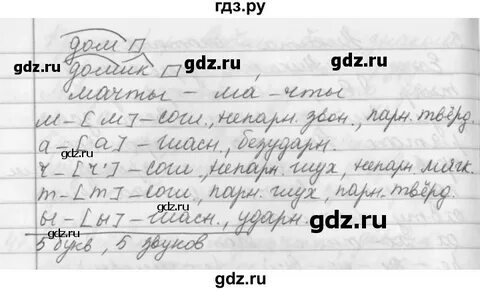 гдз.ру
дом
домик
мачты – ма́ – чты
м – [м] – согл., непарн. звон., парн. твёрд.
а – [а] – гласн., безударн.
ч – [ч'] – согл., непарн. глух., непарн. мягк.
т – [т] – согл., парн. глух., парн. твёрд.
ы – [ы] – гласн., ударн.
5 букв, 5 звуков
gdz.ru gdz.ru
gdz.ru gdz.ru
gdz.ru gdz.ru
gdz.ru gdz.ru